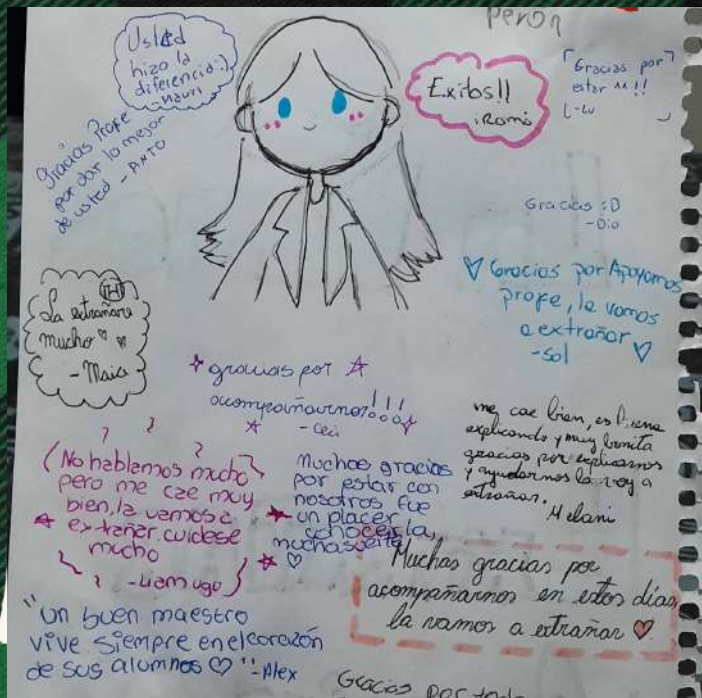 Perón
Usted
hizo la
diferencia :)
-Mauri
Exitos!!
:Romi
Gracias por
estar ^^!!
L-Lu
Gracias Profe
por dar lo mejor
de usted - ANTO
Gracias :D
-Dio
♡ Gracias por Apoyarnos
profe, la vamos
a extrañar
-Sol ♡
La extrañare
mucho ♡ ♡
- Maia
gracias por
acompañarnos!!!
- Ceci
me cae bien, es buena
explicando y muy bonita
gracias por explicarnos
y ayudarnos la voy a
extrañar.
Melani
(No hablamos mucho
pero me cae muy
bien, la vamos a
extrañar. cuidese
mucho
-Liam ugo
Muchas gracias
por estar con
nosotros fue
un placer
conocerla,
mucha suerte!
♡
Muchas gracias por
acompañarnos en estos días,
la vamos a extrañar ♡
"Un buen maestro
vive siempre en el corazón
de sus alumnos ♡"-Alex
Gracias por todo